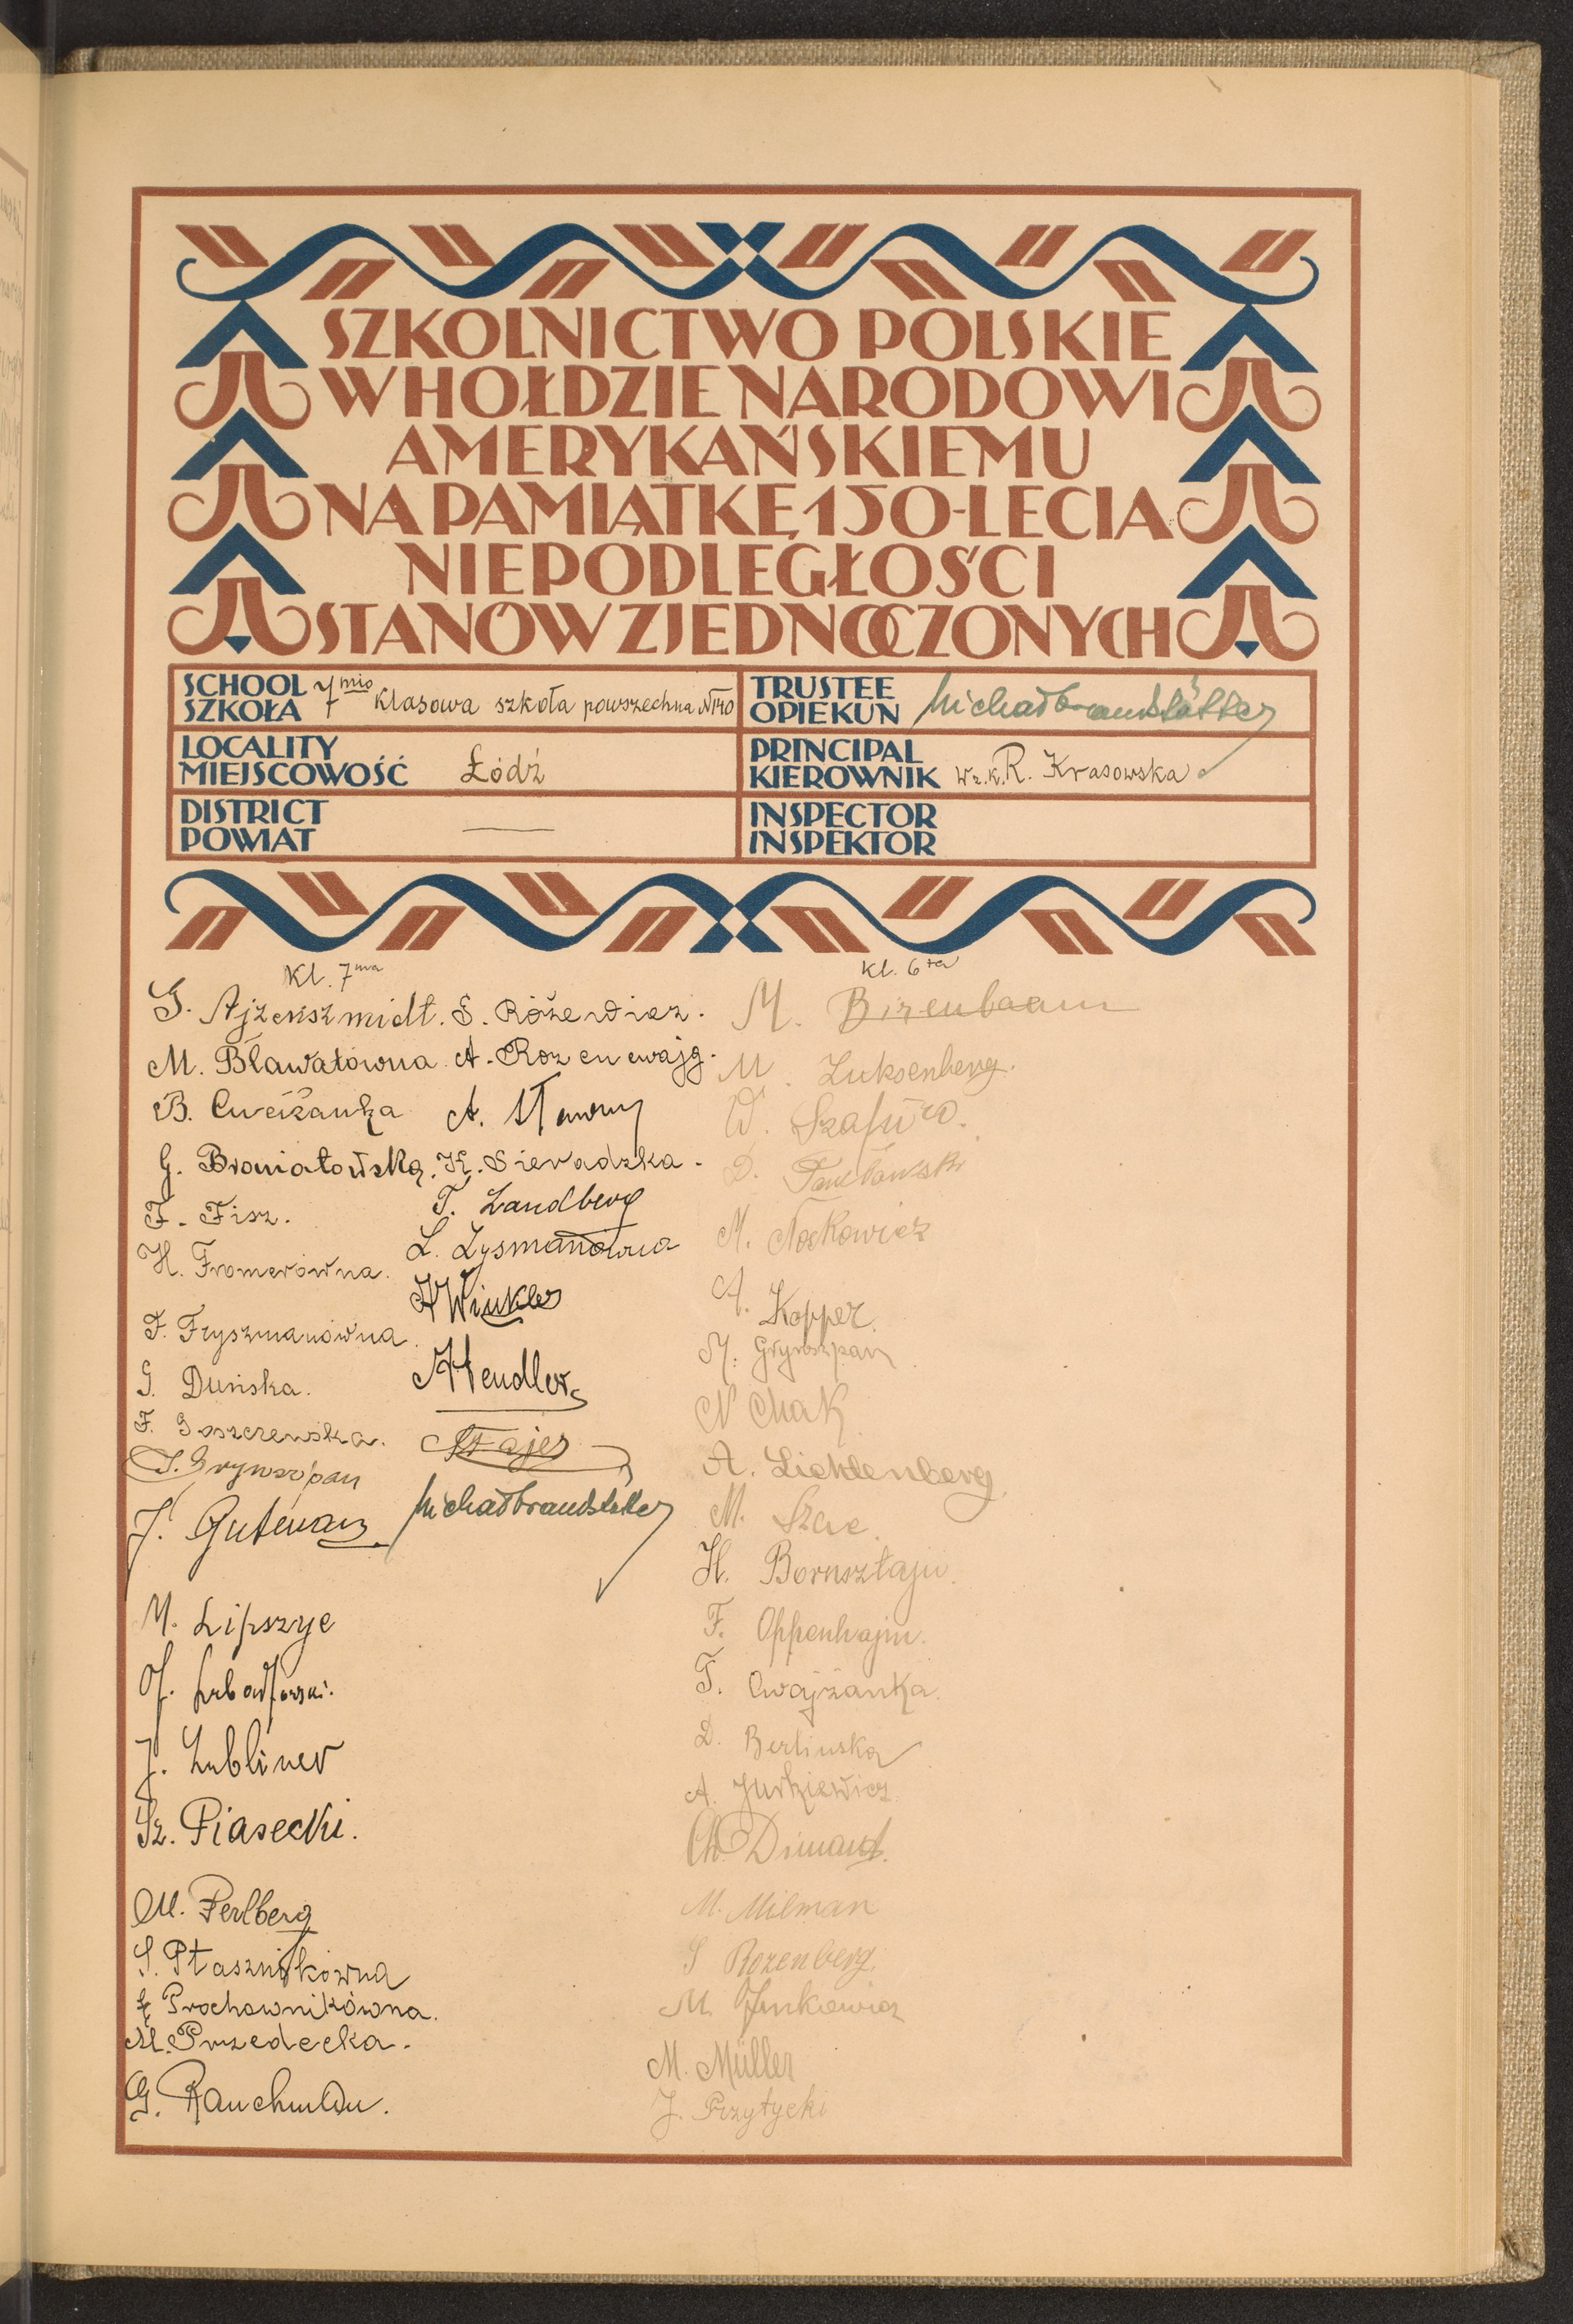 SZKOLNICTWO POLSKIE
W HOŁDZIE NARODOWI
AMERYKAŃSKIEMU
NA PAMIĄTKĘ 150-LECIA
NIEPODLEGŁOŚCI
STANÓW ZJEDNOCZONYCH
SCHOOL
SZKOŁA
7mio klasowa szkoła powszechna №140
TRUSTEE
OPIEKUN
Michał Brandstätter
LOCALITY
MIEJSCOWOŚĆ
Łódź
PRINCIPAL
KIEROWNIK
W z. k. R. Krasowska
DISTRICT
POWIAT
—
INSPECTOR
INSPEKTOR
Kl. 7ma
G. Ajzenszmidt.
M. Bławatówna
B. Cwejżanka
G. Broniatowska.
F. Fisz.
H. Fromerówna.
F. Fryszmanówna.
G. Duńska.
F. Goszczewska.
J. Grynszpan
J. Gutman
M. Lipszyc
J. Lubliner
Sz. Piasecki.
M. Perlberg
S. Ptasznikówna
Ł. Prochownikówna.
M. Przedecka.
G. Rauchman.
S. Różewicz.
A. Rozencwajg.
A. Sławny
K. Sieradzka.
T. Landberg
L. Zysmanówna
H Winkler
A Hendler
A Fajer
Michał Brandstätter
Kl. 6ta
M. Birenbaum
M. Luksenberg.
W. Szafir.
D. Pancławski
M. Noskowicz
A. Kopper.
M. Grynszpan
N Chak
A. Lichtenberg.
M. Szac.
H. Bornsztajn.
F. Oppenhajm.
T. Cwajżanka.
L. Berlinska
A. Jurkiewicz
Ch Dimant.
M. Milman
S Rozenberg.
M. Jankowicz
M. Müller
J. Przytycki